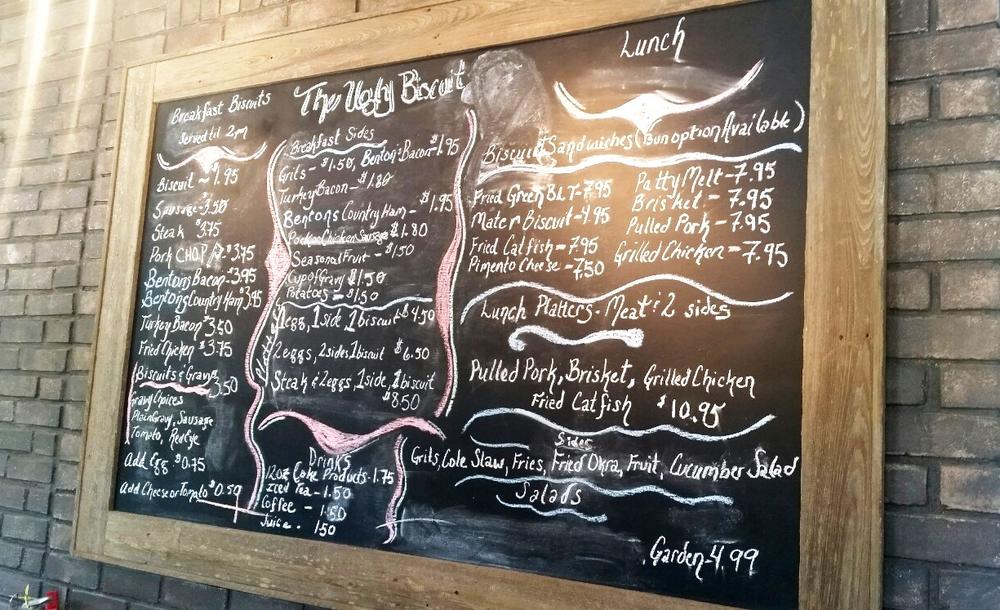 The Ugly Biscuit
Breakfast Biscuits
Served til 2pm
Biscuit - 1.95
Sausage - 3.50
Steak $3.75
Pork CHOP $3.75
Bentons Bacon - 3.95
Bentons Country Ham 3.95
Turkey Bacon $3.50
Fried Chicken $3.75
Biscuits & Gravy
3.50
Gravy Choices
Plain Gravy, Sausage
Tomato, RedEye
Add Egg $0.75
Add Cheese or Tomato $0.50
Breakfast Sides
Grits - $1.50, Bentons Bacon - $1.95
Turkey Bacon - $1.80
Bentons Country Ham - $1.95
Pork or Chicken Sausage $1.80
Seasonal Fruit - $1.50
Cup of Gravy $1.50
Potatoes - $1.50
1 egg, 1 side, 1 biscuit $4.50
2 eggs, 2 sides 1 biscuit $6.50
Steak & 2 eggs, 1 side, 1 biscuit
$8.50
Drinks
12oz Coke Products - 1.75
Iced Tea - 1.50
Coffee - 1.50
Juice - 1.50
Lunch
Biscuit Sandwiches (Bun option Available)
Fried Green BLT - 7.95
Mater Biscuit - 4.95
Fried Catfish - 7.95
Pimento Cheese - 7.50
Patty Melt - 7.95
Brisket - 7.95
Pulled Pork - 7.95
Grilled Chicken - 7.95
Lunch Platters - Meat & 2 sides
Pulled Pork, Brisket, Grilled Chicken
Fried Catfish $10.95
Sides
Grits, Cole Slaw, Fries, Fried Okra, Fruit, Cucumber Salad
Salads
Garden - 4.99